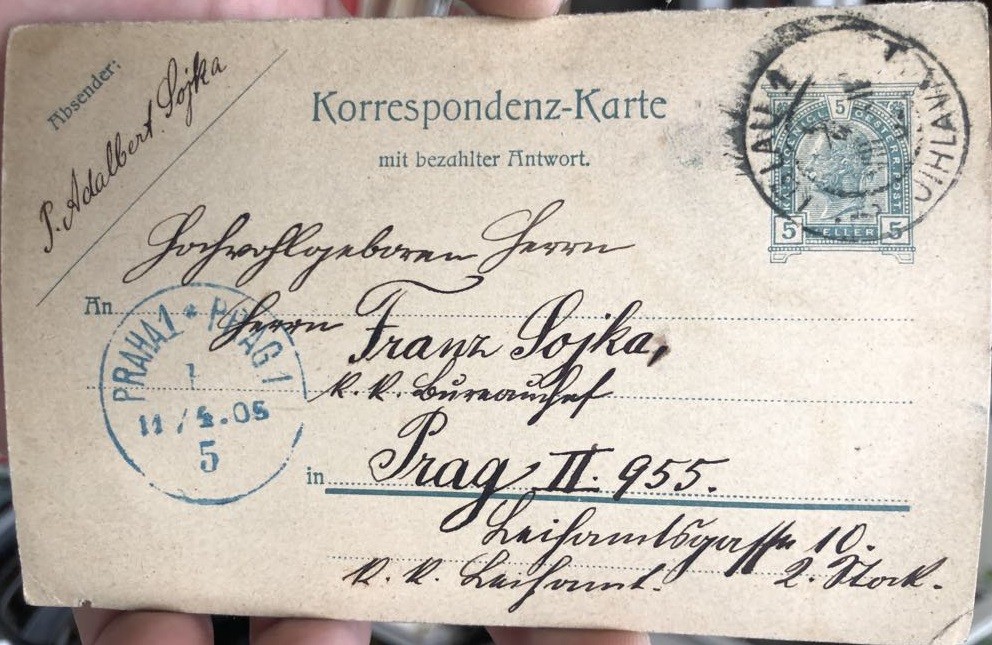 Absender:
P. Adalbert Sojka
Korrespondenz-Karte
mit bezahlter Antwort.
5
5 HELLER 5
IGLAU 1
JIHLAVA 1
Hochwohlgeboren Herrn
An
Herrn Franz Sojka,
k. k. Bureauchef
in Prag II. 955.
Leihamtsgasse 10.
k. k. Leihamt. 2. Stock.
PRAHA 1 * PRAG 1
1
11/5.05
5